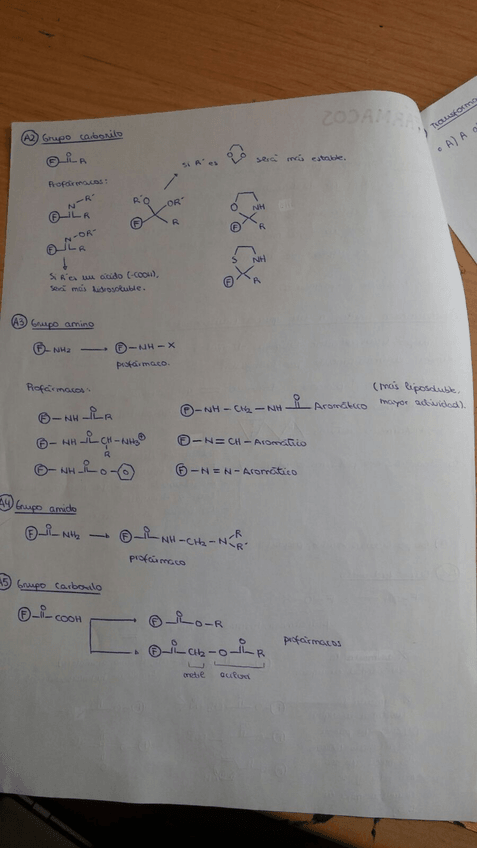 FÁRMACOS
Transforma
• A) A
A2 Grupo carbonilo
F-C(=O)-R
si R´ es será más estable.
Profármacos:
N-R´ R´O OR´ O NH
F R F R F R
N-OR´ S NH
F R F R
Si R´ es un ácido (-COOH),
será más hidrosoluble.
A3 Grupo amino
F-NH2 → F-NH-X
profármaco.
Profármacos:
(más liposoluble,
mayor actividad).
F-NH-C(=O)-R F-NH-CH2-NH-C(=O)-Aromático
F-NH-C(=O)-CH(R)-NH3⊕ F-N=CH-Aromático
F-NH-C(=O)-O- F-N=N-Aromático
A4 Grupo amido
F-C(=O)-NH2 → F-C(=O)-NH-CH2-N R R´
profármaco
A5 Grupo carboxilo
F-C(=O)-COOH → F-C(=O)-O-R
profármacos
F-C(=O)-CH2-O-C(=O)-R
metil